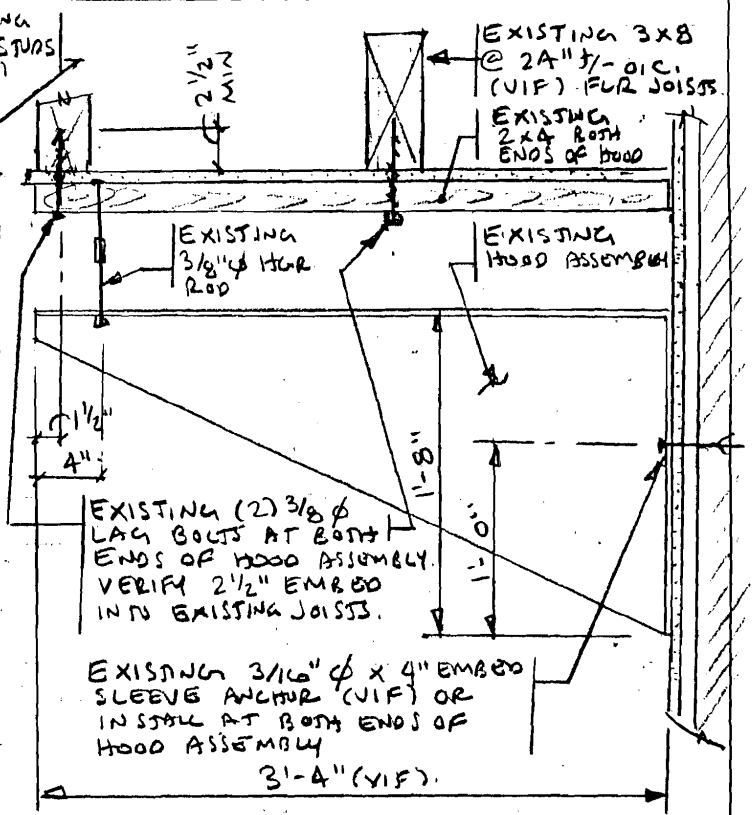 NG
STUDS
2 1/2"
MIN
EXISTING 3X8
@ 24" +/- O.C.
(VIF) FLR JOISTS.
EXISTING
2X4 BOTH
ENDS OF HOOD
EXISTING
3/8"φ HGR
ROD
EXISTING
HOOD ASSEMBLY
1 1/2"
4"
1'-8"
1'-0"
EXISTING (2) 3/8 φ
LAG BOLTS AT BOTH
ENDS OF HOOD ASSEMBLY.
VERIFY 2 1/2" EMBED
INTO EXISTING JOISTS.
EXISTING 3/16" φ X 4" EMBED
SLEEVE ANCHOR (VIF) OR
INSTALL AT BOTH ENDS OF
HOOD ASSEMBLY
3'-4" (VIF).